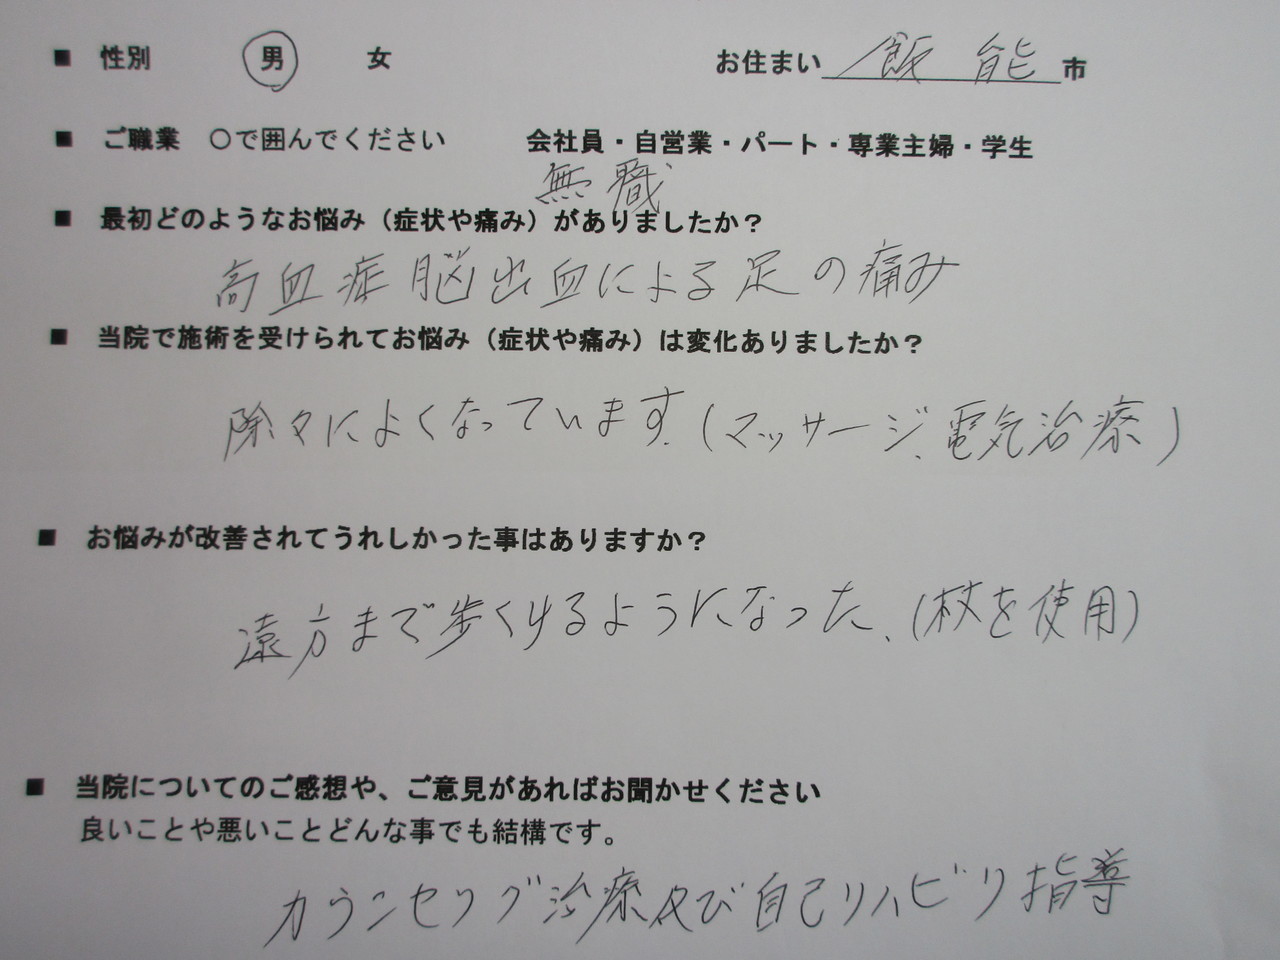 ■ 性別 男 女 お住まい 飯能 市
■ ご職業 ○で囲んでください 会社員・自営業・パート・専業主婦・学生
無職
■ 最初どのようなお悩み（症状や痛み）がありましたか？
高血症脳出血による足の痛み
■ 当院で施術を受けられてお悩み（症状や痛み）は変化ありましたか？
除々によくなっています.(マッサージ、電気治療)
■ お悩みが改善されてうれしかった事はありますか？
遠方まで歩くけるようになった、(杖を使用)
■ 当院についてのご感想や、ご意見があればお聞かせください
良いことや悪いことどんな事でも結構です。
カウンセリング治療及び自己リハビリ指導